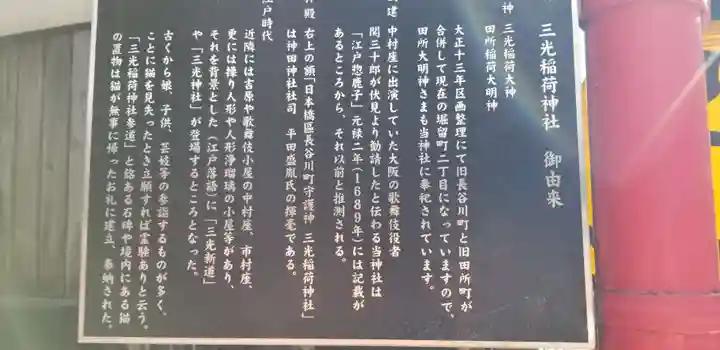 三光稲荷神社 御由来
神 三光稲荷大神
田所稲荷大明神
大正十三年区画整理にて旧長谷川町と旧田所町が
合併して現在の堀留町二丁目になっていますので、
田所大明神さまも当神社に奉祀されています。
建 中村座に出演していた大阪の歌舞伎役者
関三十郎が伏見より勧請したと伝わる当神社は
「江戸惣鹿子」元禄二年(1689年)には記載が
あるところから、それ以前と推測される。
殿 右上の額「日本橋區長谷川町守護神 三光稲荷神社」
は神田神社社司 平田盛胤氏の揮毫である。
江戸時代
近隣には吉原や歌舞伎小屋の中村座、市村座、
更には操り人形や人形浄瑠璃の小屋等があり、
それを背景とした〈江戸落語〉に「三光新道」
や「三光神社」が登場するところとなった。
古くから娘、子供、芸妓等の参詣するものが多く、
ことに猫を見失ったとき立願すれば霊験ありと云う。
「三光稲荷神社参道」と銘ある石碑や境内にある猫
の置物は猫が無事に帰ったお礼に建立、奉納された。